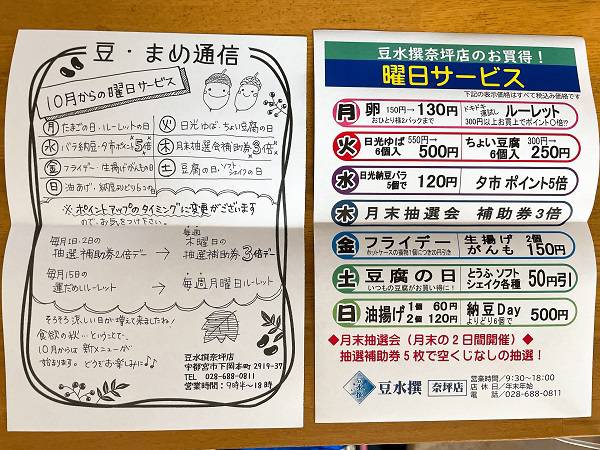 豆・まめ通信
10月からの曜日サービス
月 たまごの日・ルーレットの日
火 日光ゆば・ちょい豆腐の日
水 バラ納豆・夕市ポイント5倍
木 月末抽選会補助券3倍
金 フライデー・生揚げがんもの日
土 豆腐の日・ソフトシェイクの日
日 油あげ・納豆よりどりの日
※ ポイントアップのタイミングに変更がございます
ので、お気をつけ下さい。
毎月1日・2日の
抽選補助券2倍デー → 毎週木曜日の抽選補助券3倍デー
毎月15日の
運だめしルーレット → 毎週月曜日ルーレット
そろそろ涼しい日が増えて来ましたね!
食欲の秋…ということで、
10月からは新メニューが
始まります。どうぞお楽しみに♪♪
豆水撰奈坪店
宇都宮市下岡本町2919-37
TEL 028-688-0811
営業時間:9時半~18時
豆水撰奈坪店のお買得!
曜日サービス
下記の表示価格はすべて税込み価格です
月 卵 150円→130円 おひとり様2パックまで
ドキドキ運試し ルーレット
300円以上お買上でポイント〇倍!?
火 日光ゆば 6個入 550円→500円
ちょい豆腐 6個入 300円→250円
水 日光納豆バラ 5個で 120円 夕市 ポイント5倍
木 月末抽選会 補助券3倍
金 フライデー ホットケースの揚物1個につき10円引き
生揚げ がんも 2個 150円
土 豆腐の日 いつもの豆腐がお買い得に!
とうふ ソフト シェイク各種 50円引
日 油揚げ 1個 60円 2個 120円
納豆Day よりどり6個で 500円
◆月末抽選会(月末の2日間開催)◆
抽選補助券5枚で空くじなしの抽選!
豆水撰 奈坪店
営業時間/9:30~18:00
店休日/年末年始
電話/028-688-0811